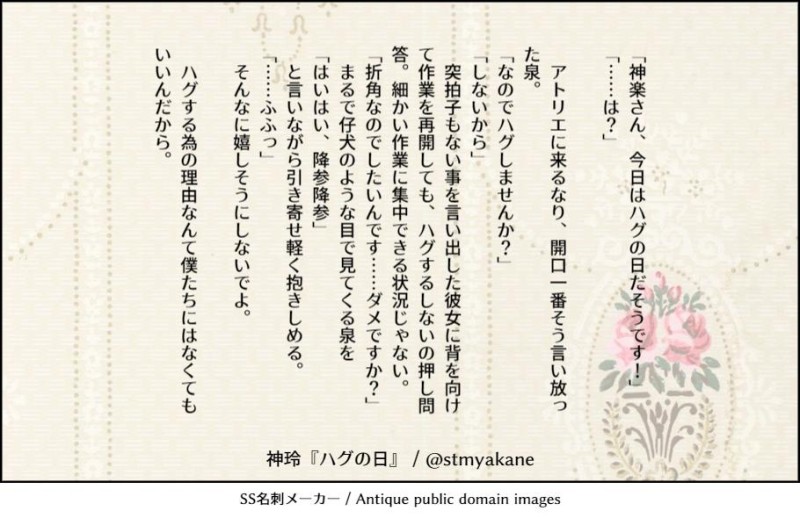 「神楽さん、今日はハグの日だそうです！」
「……は？」
　アトリエに来るなり、開口一番そう言い放っ
た泉。
「なのでハグしませんか？」
「しないから」
　突拍子もない事を言い出した彼女に背を向け
て作業を再開しても、ハグするしないの押し問
答。細かい作業に集中できる状況じゃない。
「折角なのでしたいんです……ダメですか？」
　まるで仔犬のような目で見てくる泉を
「はいはい、降参降参」
　と言いながら引き寄せ軽く抱きしめる。
「……ふふっ」
　そんなに嬉しそうにしないでよ。
　ハグする為の理由なんて僕たちにはなくても
いいんだから。
神玲『ハグの日』 / @stmyakane
SS名刺メーカー / Antique public domain images